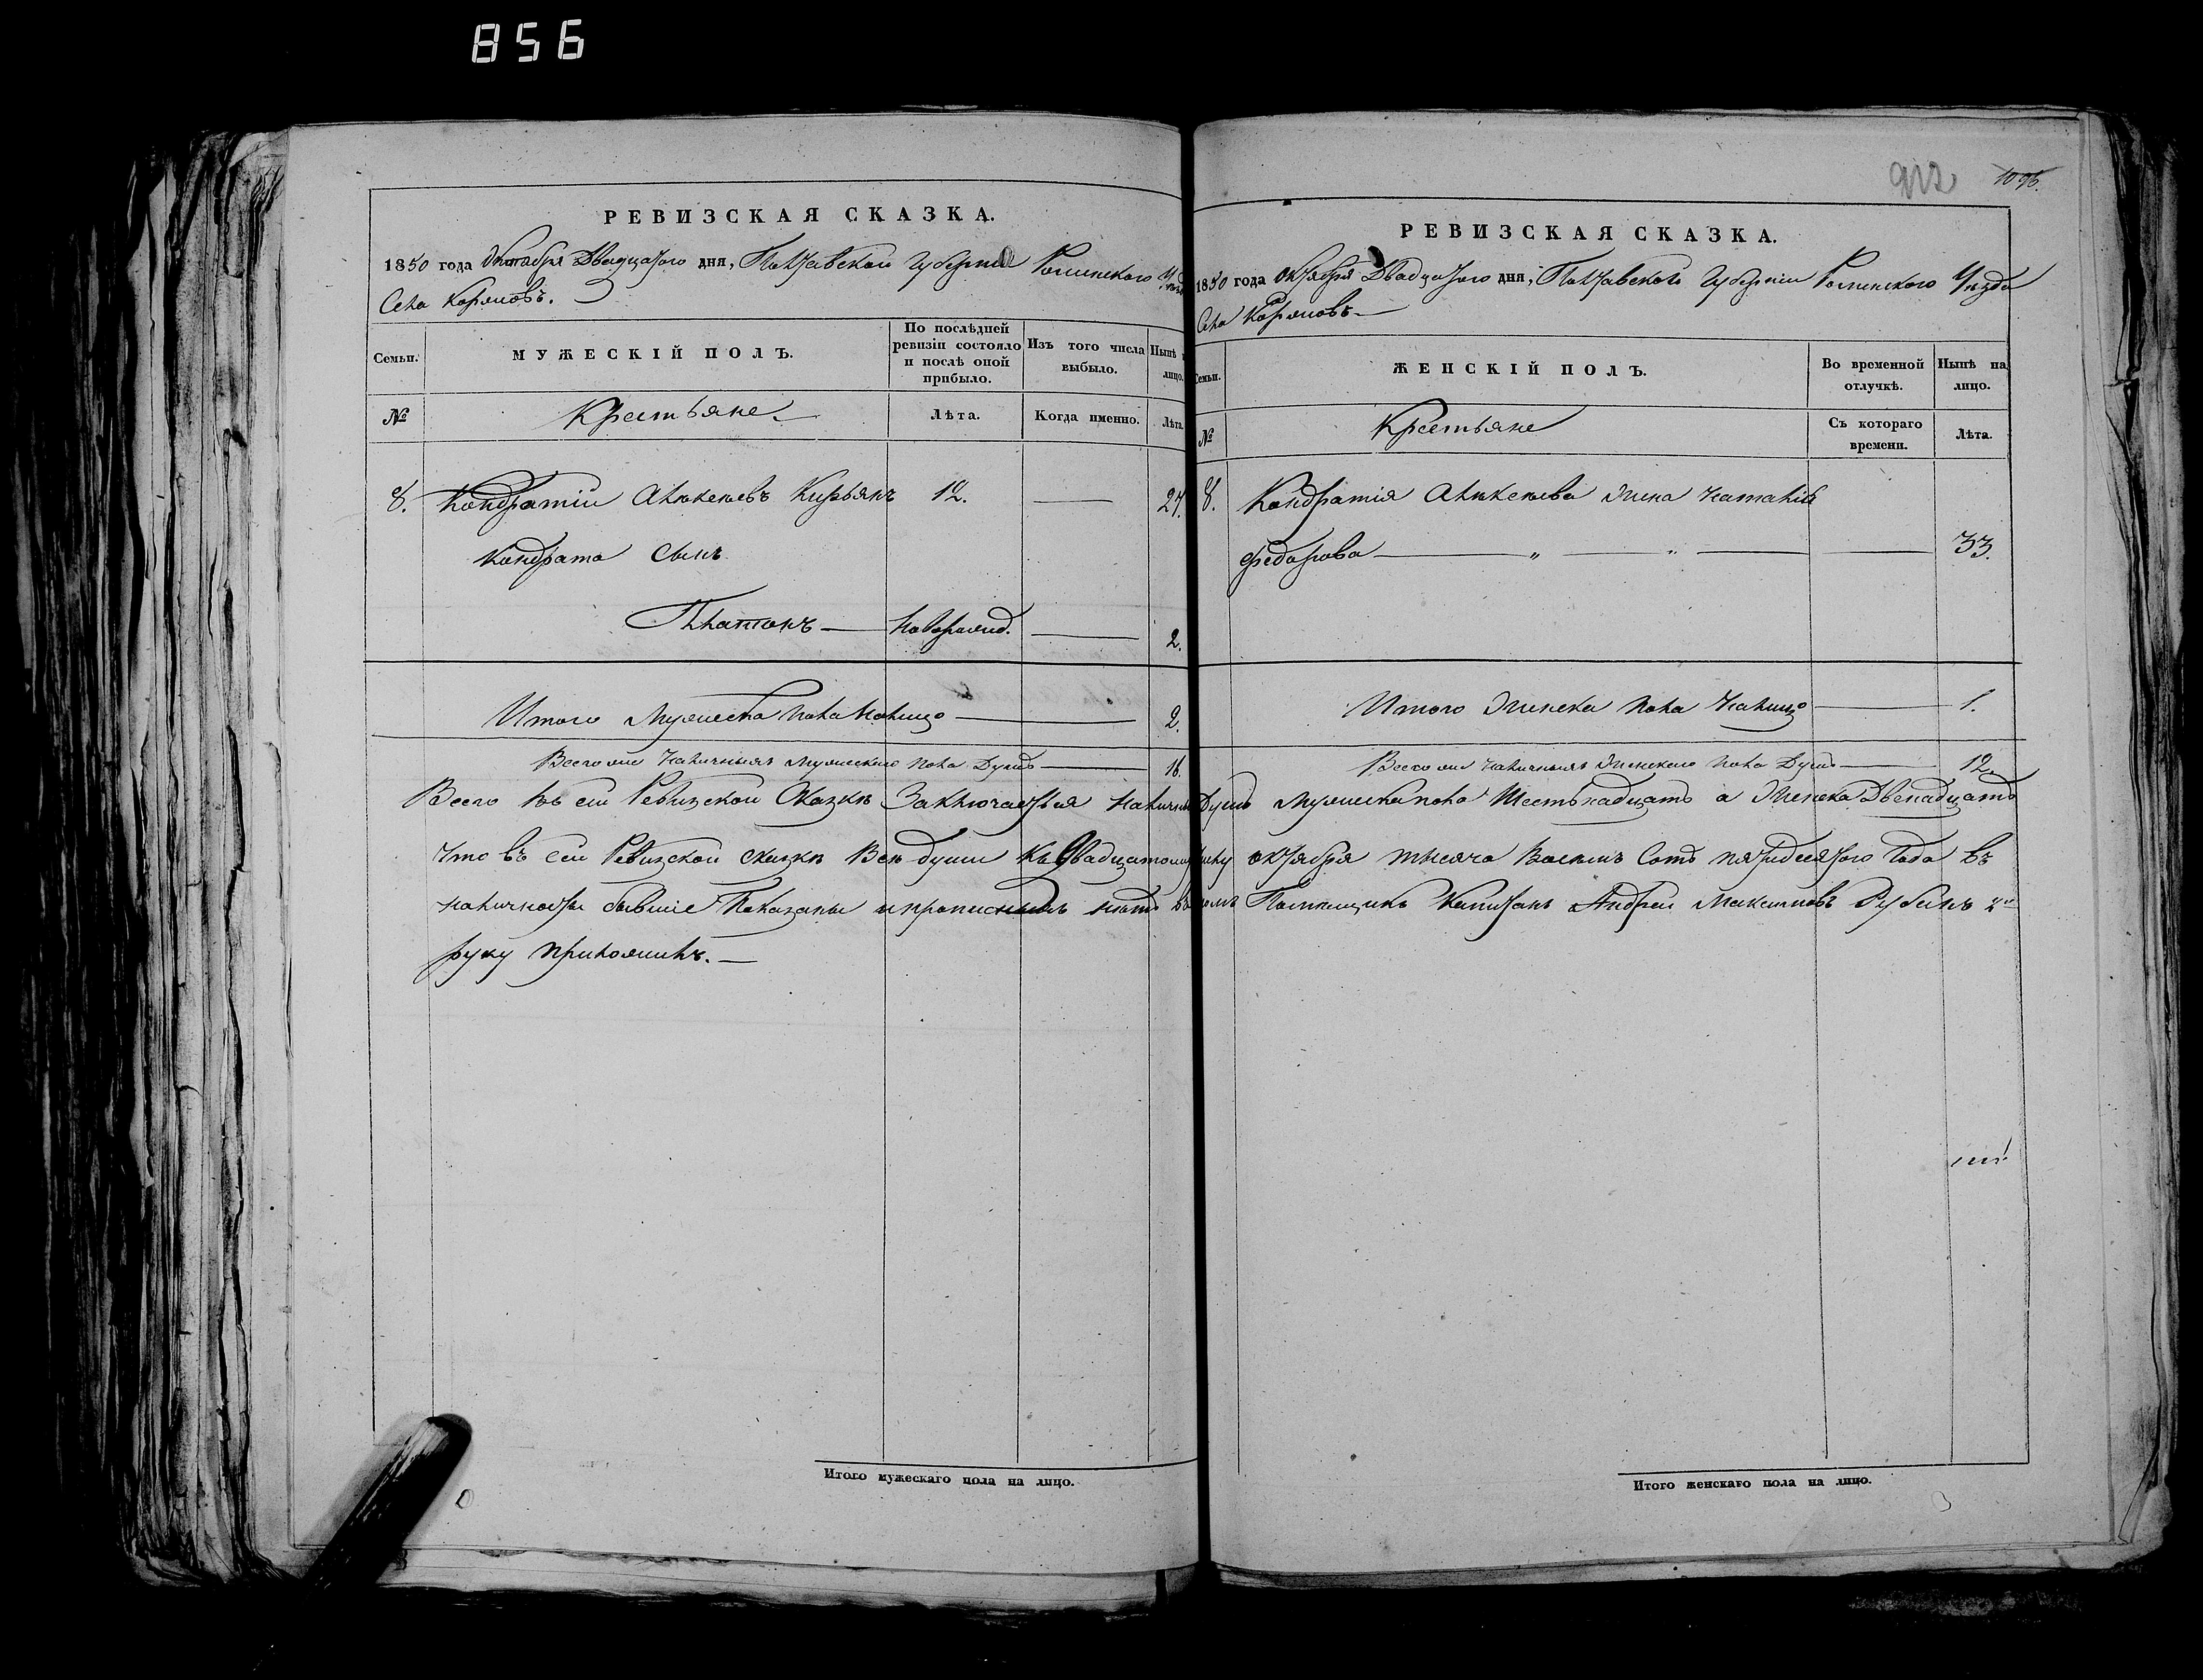 856
РЕВИЗСКАЯ СКАЗКА.
1850 года Октября Двадцатого дня, Полтавской Губернии Роменского Уезд
Села Коржовъ.
Семьи.
МУЖЕСКІЙ ПОЛЪ.
По послѣдней ревизіи состояло и послѣ оной прибыло.
Изъ того числа выбыло.
Нынѣ
лицо.
№
Крестьяне
Лѣта.
Когда именно.
Лѣта.
8. Кондратій Алексѣевъ Кирьянъ 12. — 27.
Кондрата Сынъ
Платонъ — новорожд. — 2.
Итого Мужеска пола налицо — 2.
Всего наличныхъ мужескаго пола Душъ — 16.
РЕВИЗСКАЯ СКАЗКА.
912 1096.
1850 года Октября Двадцатого дня, Полтавской Губерніи Роменского Уезда
Села Коржовъ —
Семьи.
ЖЕНСКІЙ ПОЛЪ.
Во временной отлучкѣ.
Нынѣ на лицо.
№
Крестьяне
Съ котораго времени.
Лѣта.
8. Кондратія Алексѣева жена Наталія
Федорова — „ — „ — 33.
Итого Женска пола Налицо — 1.
Всего наличныхъ Женскаго пола Душъ — 12.
Всего въ сей Ревизской Сказкѣ Заключается Наличн Душъ мужеска пола Шестьнадцать а Женска Двенадцать
что въ сей Ревизской сказкѣ Всѣ души къ двадцатому числу октября тысяча Восемь Сотъ пятидесятого Года въ
наличности бывшіе Показаны и прописныхъ нѣтъ въ томъ Помѣщикъ Капитанъ Андрей Максимовъ
руку приложилъ. —
Итого мужескаго пола на лицо.
Итого женскаго пола на лицо.